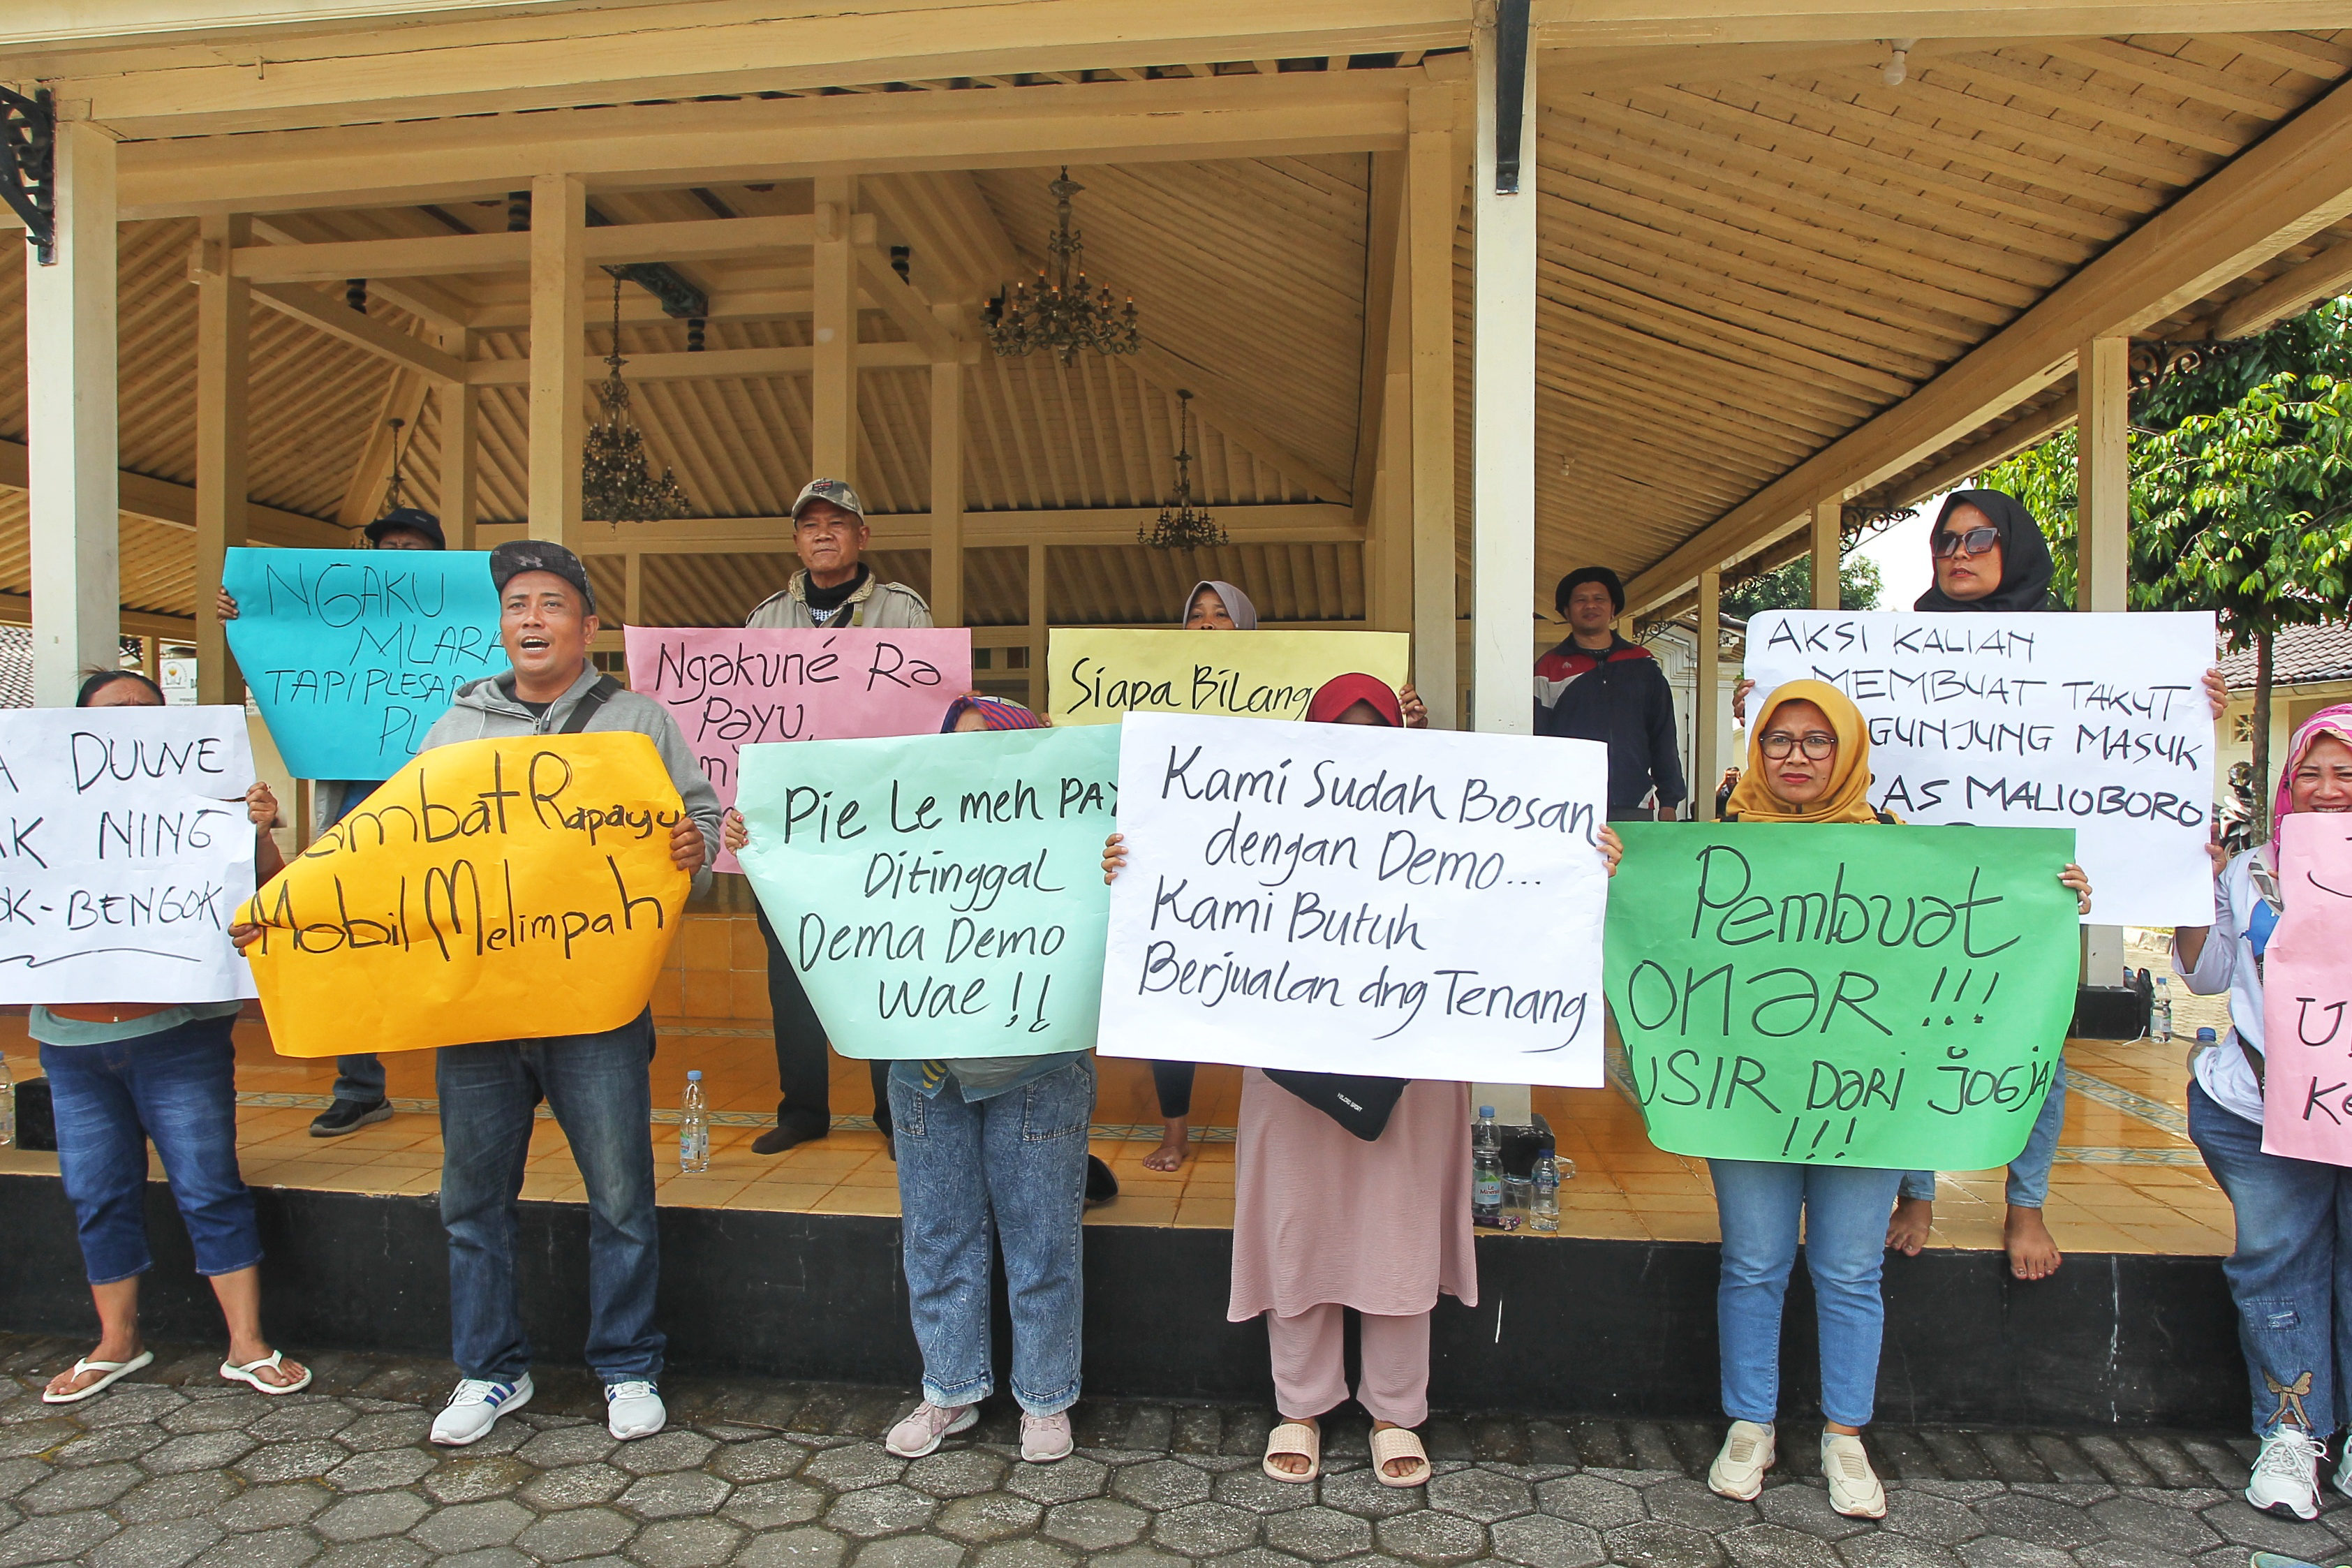 NGAKU
MLARA
TAPI
Ngakuné Ra
payu,
Siapa Bilang
AKSI KALIAN
MEMBUAT TAKUT
MASUK
MALIOBORO
DUWE
NING
BENGOK
Rapayu
Mobil Melimpah
Pie Le meh
Ditinggal
Dema Demo
wae !!
Kami Sudah Bosan
dengan Demo...
Kami Butuh
Berjualan dng Tenang
Pembuat
onar !!!
USIR DARI JOGJA
!!!